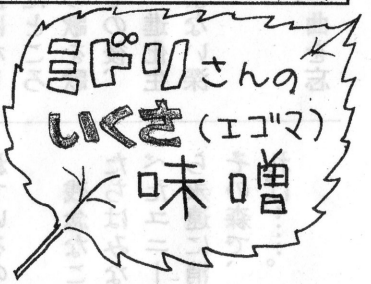 ミドリさんの
いくさ(エゴマ)
味噌